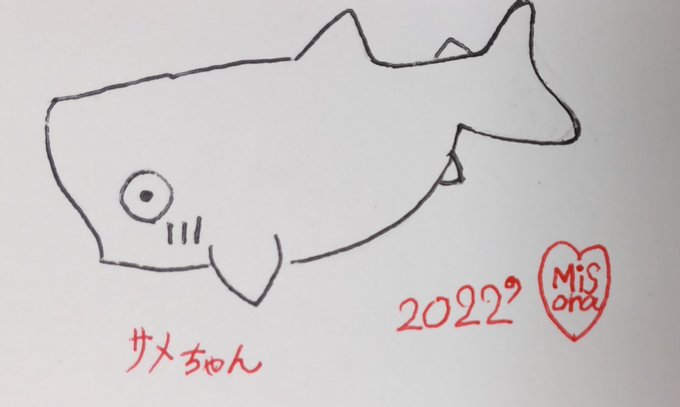 サメちゃん
2022,
Mis
ora